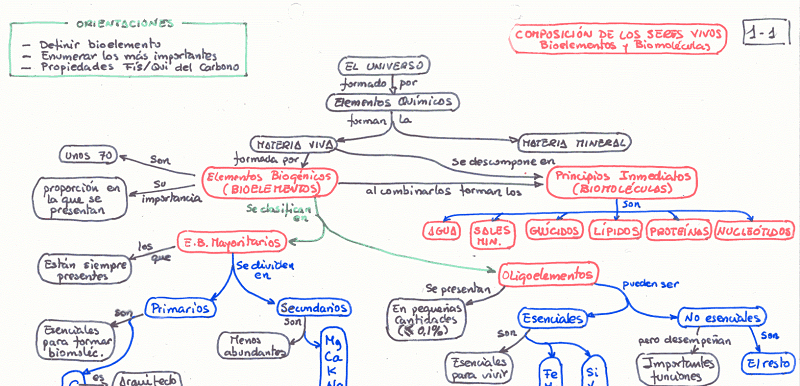 ORIENTACIONES
— Definir bioelemento
— Enumerar los más importantes
— Propiedades Fís/Quí del Carbono
COMPOSICIÓN DE LOS SERES VIVOS
Bioelementos y Biomoléculas
1-1
EL UNIVERSO
formado por
Elementos Químicos
forman la
MATERIA VIVA
MATERIA MINERAL
formada por
Se descompone en
unos 70
Son
Elementos Biogénicos
(BIOELEMENTOS)
al combinarlos forman los
Principios Inmediatos
(BIOMOLÉCULAS)
Su
importancia
proporción en
la que se
presentan
son
AGUA
SALES
MIN.
GLÚCIDOS
LÍPIDOS
PROTEÍNAS
NUCLEÓTIDOS
Se clasifican
en
E.B. Mayoritarios
los
que
Están siempre
presentes
Se dividen
en
Oligoelementos
Se presentan
En pequeñas
Cantidades
(≤ 0,1%)
pueden ser
Primarios
Secundarios
Esenciales
No esenciales
son
Esenciales
para formar
biomoléc.
son
Menos
abundantes
Mg
Ca
K
Na
son
Esenciales
para vivir
Fe
Si
pero desempeñan
Importantes
funciones
son
El resto
es
Arquitecto